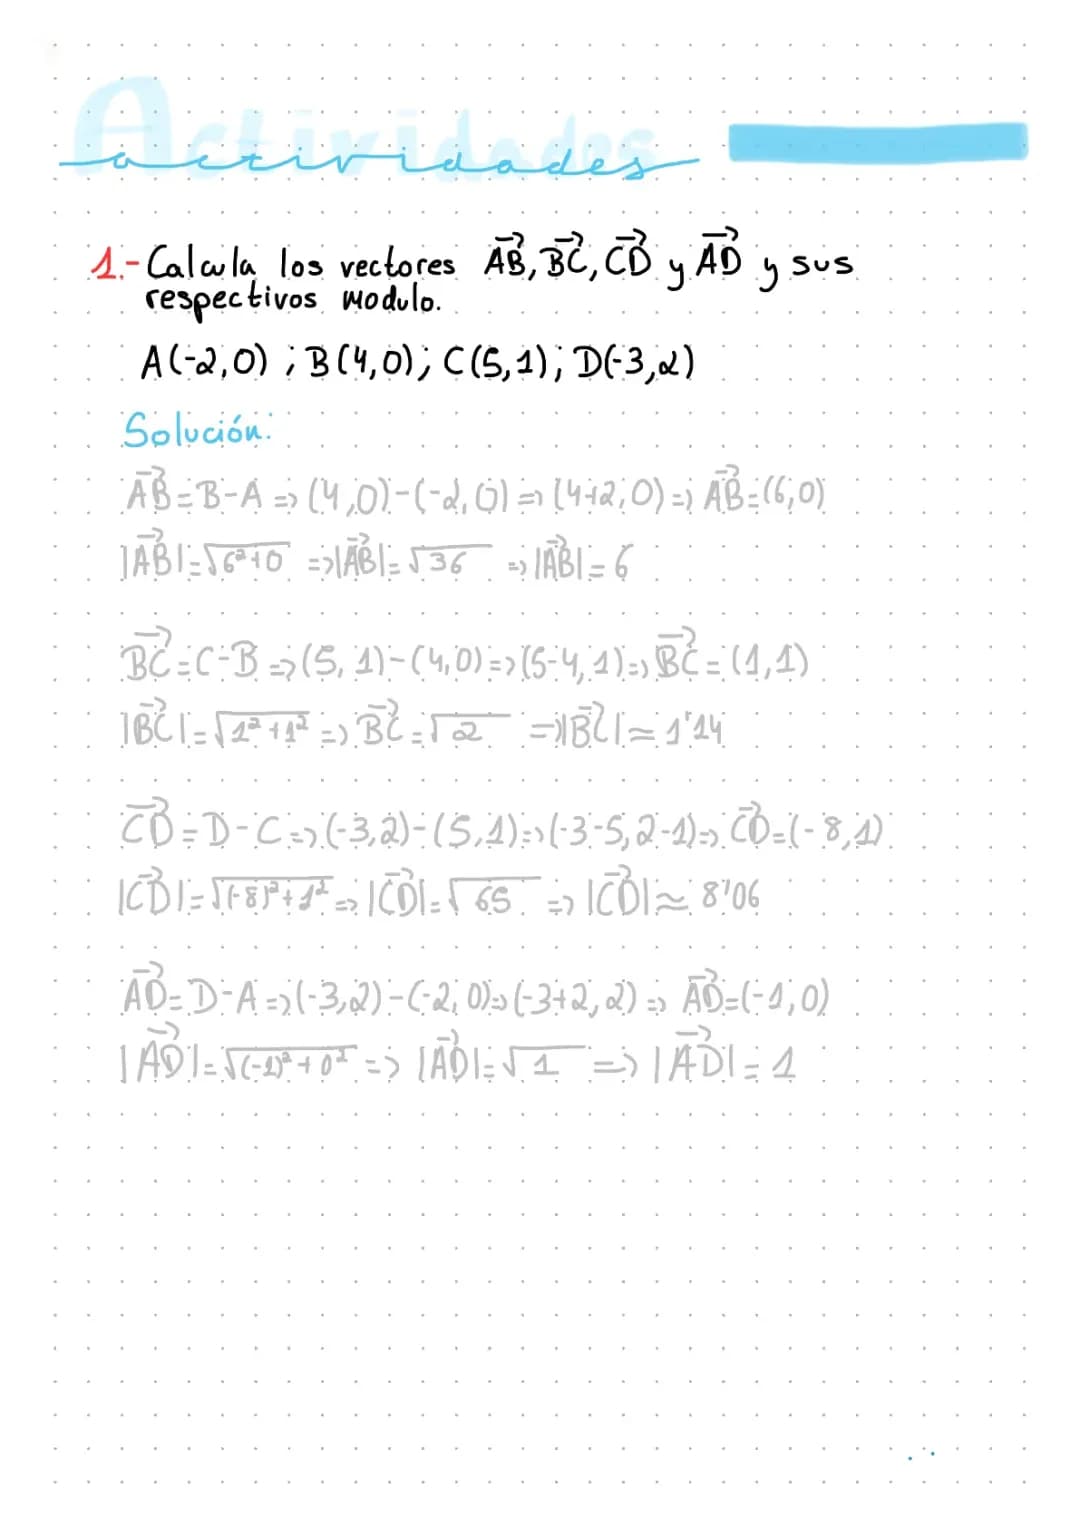 Actividades
actividades
1.- Calcula los vectores A⃗B, B⃗C, C⃗D y A⃗D y sus
respectivos modulo.
A(-2,0) ; B(4,0); C(5,1); D(-3,2)
Solución:
A⃗B=B-A => (4,0)-(-2,0) => (4+2,0) => A⃗B=(6,0)
|A⃗B|=√6²+0 => |A⃗B|=√36 => |A⃗B|=6
B⃗C=C-B => (5,1)-(4,0) => (5-4,1) => B⃗C=(1,1)
|B⃗C|=√1²+1² => B⃗C=√2 => |B⃗C|≃1'14
C⃗D=D-C => (-3,2)-(5,1) => (-3-5,2-1) => C⃗D=(-8,1)
|C⃗D|=√(-8)²+1² => |C⃗D|=√65 => |C⃗D|≃8'06
A⃗D=D-A => (-3,2)-(-2,0) => (-3+2,2) => A⃗D=(-1,0)
|A⃗D|=√(-1)²+0² => |A⃗D|=√1 => |A⃗D|=1